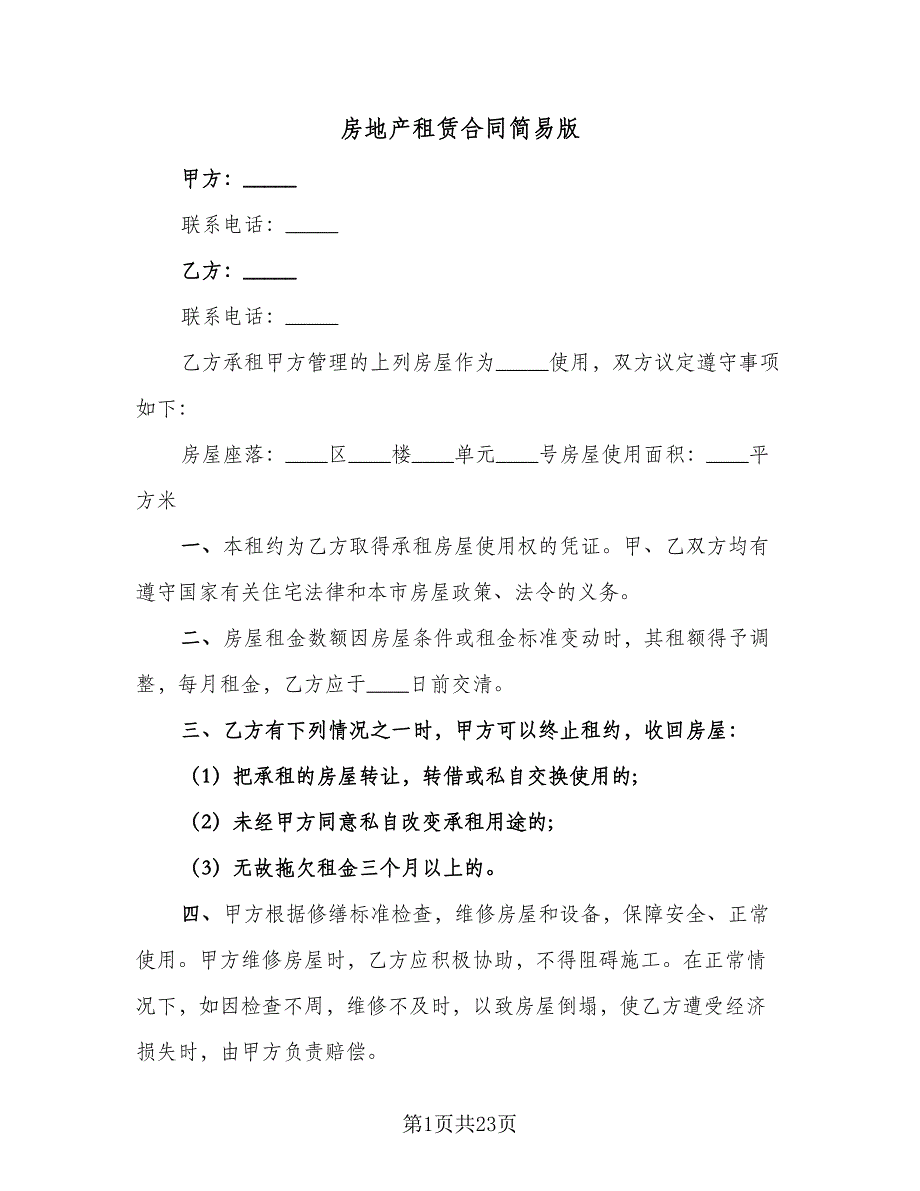 房地产租赁合同简易版
甲方：_____
联系电话：_____
乙方：_____
联系电话：_____
乙方承租甲方管理的上列房屋作为_____使用，双方议定遵守事项
如下：
房屋座落：____区____楼____单元____号房屋使用面积：____平
方米
一、本租约为乙方取得承租房屋使用权的凭证。甲、乙双方均有
遵守国家有关住宅法律和本市房屋政策、法令的义务。
二、房屋租金数额因房屋条件或租金标准变动时，其租额得予调
整，每月租金，乙方应于____日前交清。
三、乙方有下列情况之一时，甲方可以终止租约，收回房屋：
（1）把承租的房屋转让，转借或私自交换使用的；
（2）未经甲方同意私自改变承租用途的；
（3）无故拖欠租金三个月以上的。
四、甲方根据修缮标准检查，维修房屋和设备，保障安全、正常
使用。甲方维修房屋时，乙方应积极协助，不得阻碍施工。在正常情
况下，如因检查不周，维修不及时，以致房屋倒塌，使乙方遭受经济
损失时，由甲方负责赔偿。
第1页共23页